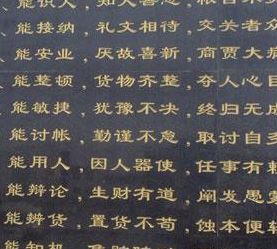 能识人，知人善恶
能接纳，礼文相待，交关者众
能安业，厌故喜新，商贾大病
能整顿，货物齐整，夺人心目
能敏捷，犹豫不决，终归无成
能讨帐，勤谨不怠，取讨自多
能用人，因人器使，任事有赖
能辩论，生财有道，阐发愚蒙
能辨货，置货不苟，蚀本便轻
能知机